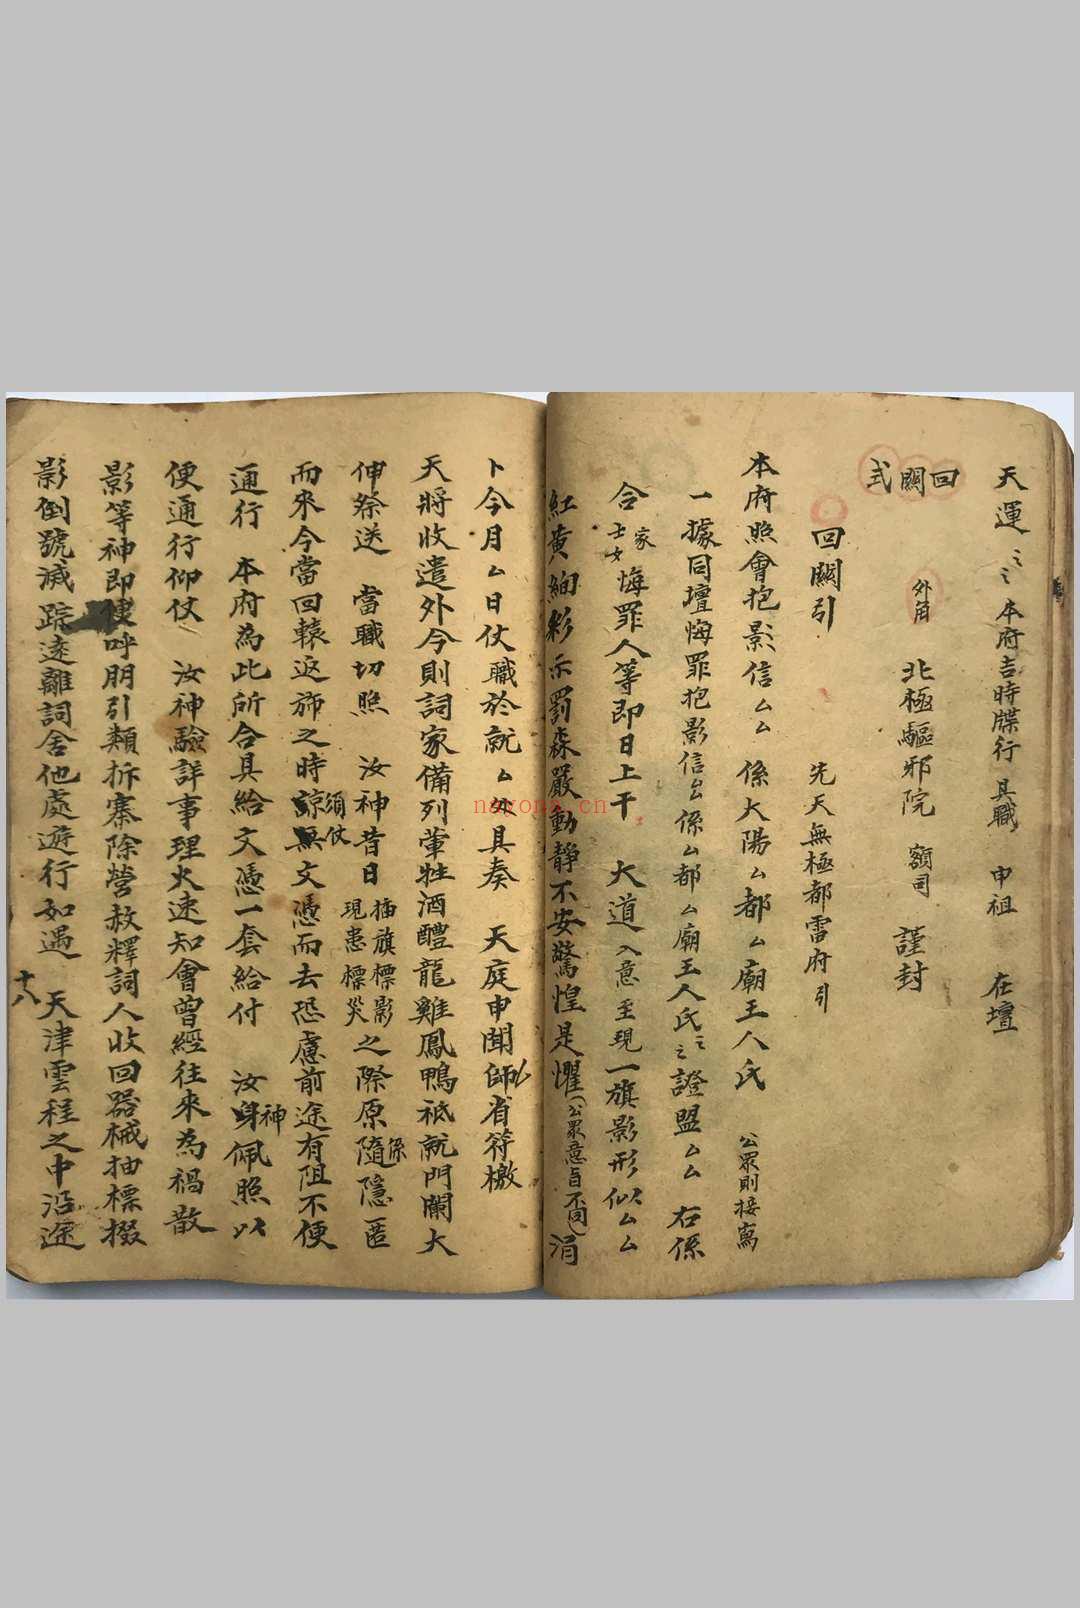 天運之之 本府吉時牒行 具職 申祖 在壇
回關式 外角 北極驅邪院 額司 謹封
回關引 先天無極都雷府引
本府照會抱影信厶厶 係大陽厶都厶廟王人氏 公眾則接寫
一據同壇悔罪抱影信厶 係厶都厶廟王人氏之之證盟厶厶 右係
合家士女悔罪人等即日上干 大道入意至現一旗影形似厶厶
紅黃絢彩示罰森嚴動靜不安驚惶是懼(公眾意旨不同) 涓
卜今月厶日仗職於就厶處具奏 天庭申聞師省符檄
天將收遣外今則詞家備列葷牲酒醴龍雞鳳鴨祇就門闌大
伸祭送 當職切照 汝神昔日插旗標影現患標災之際原係隨隱匿
而來今當回轅返斾之時須仗諒無文憑而去恐慮前途有阻不便
通行 本府為此所合具給文憑一套給付 汝神身佩照以
便通行仰仗 汝神驗詳事理火速知會曾經往來為禍散
影等神即便呼朋引類拆寨除營赦釋詞人收回器械抽標掇
影倒號減踪遠離詞舍他處遊行如遇 天津雲程之中沿途
十八
nayona.cn